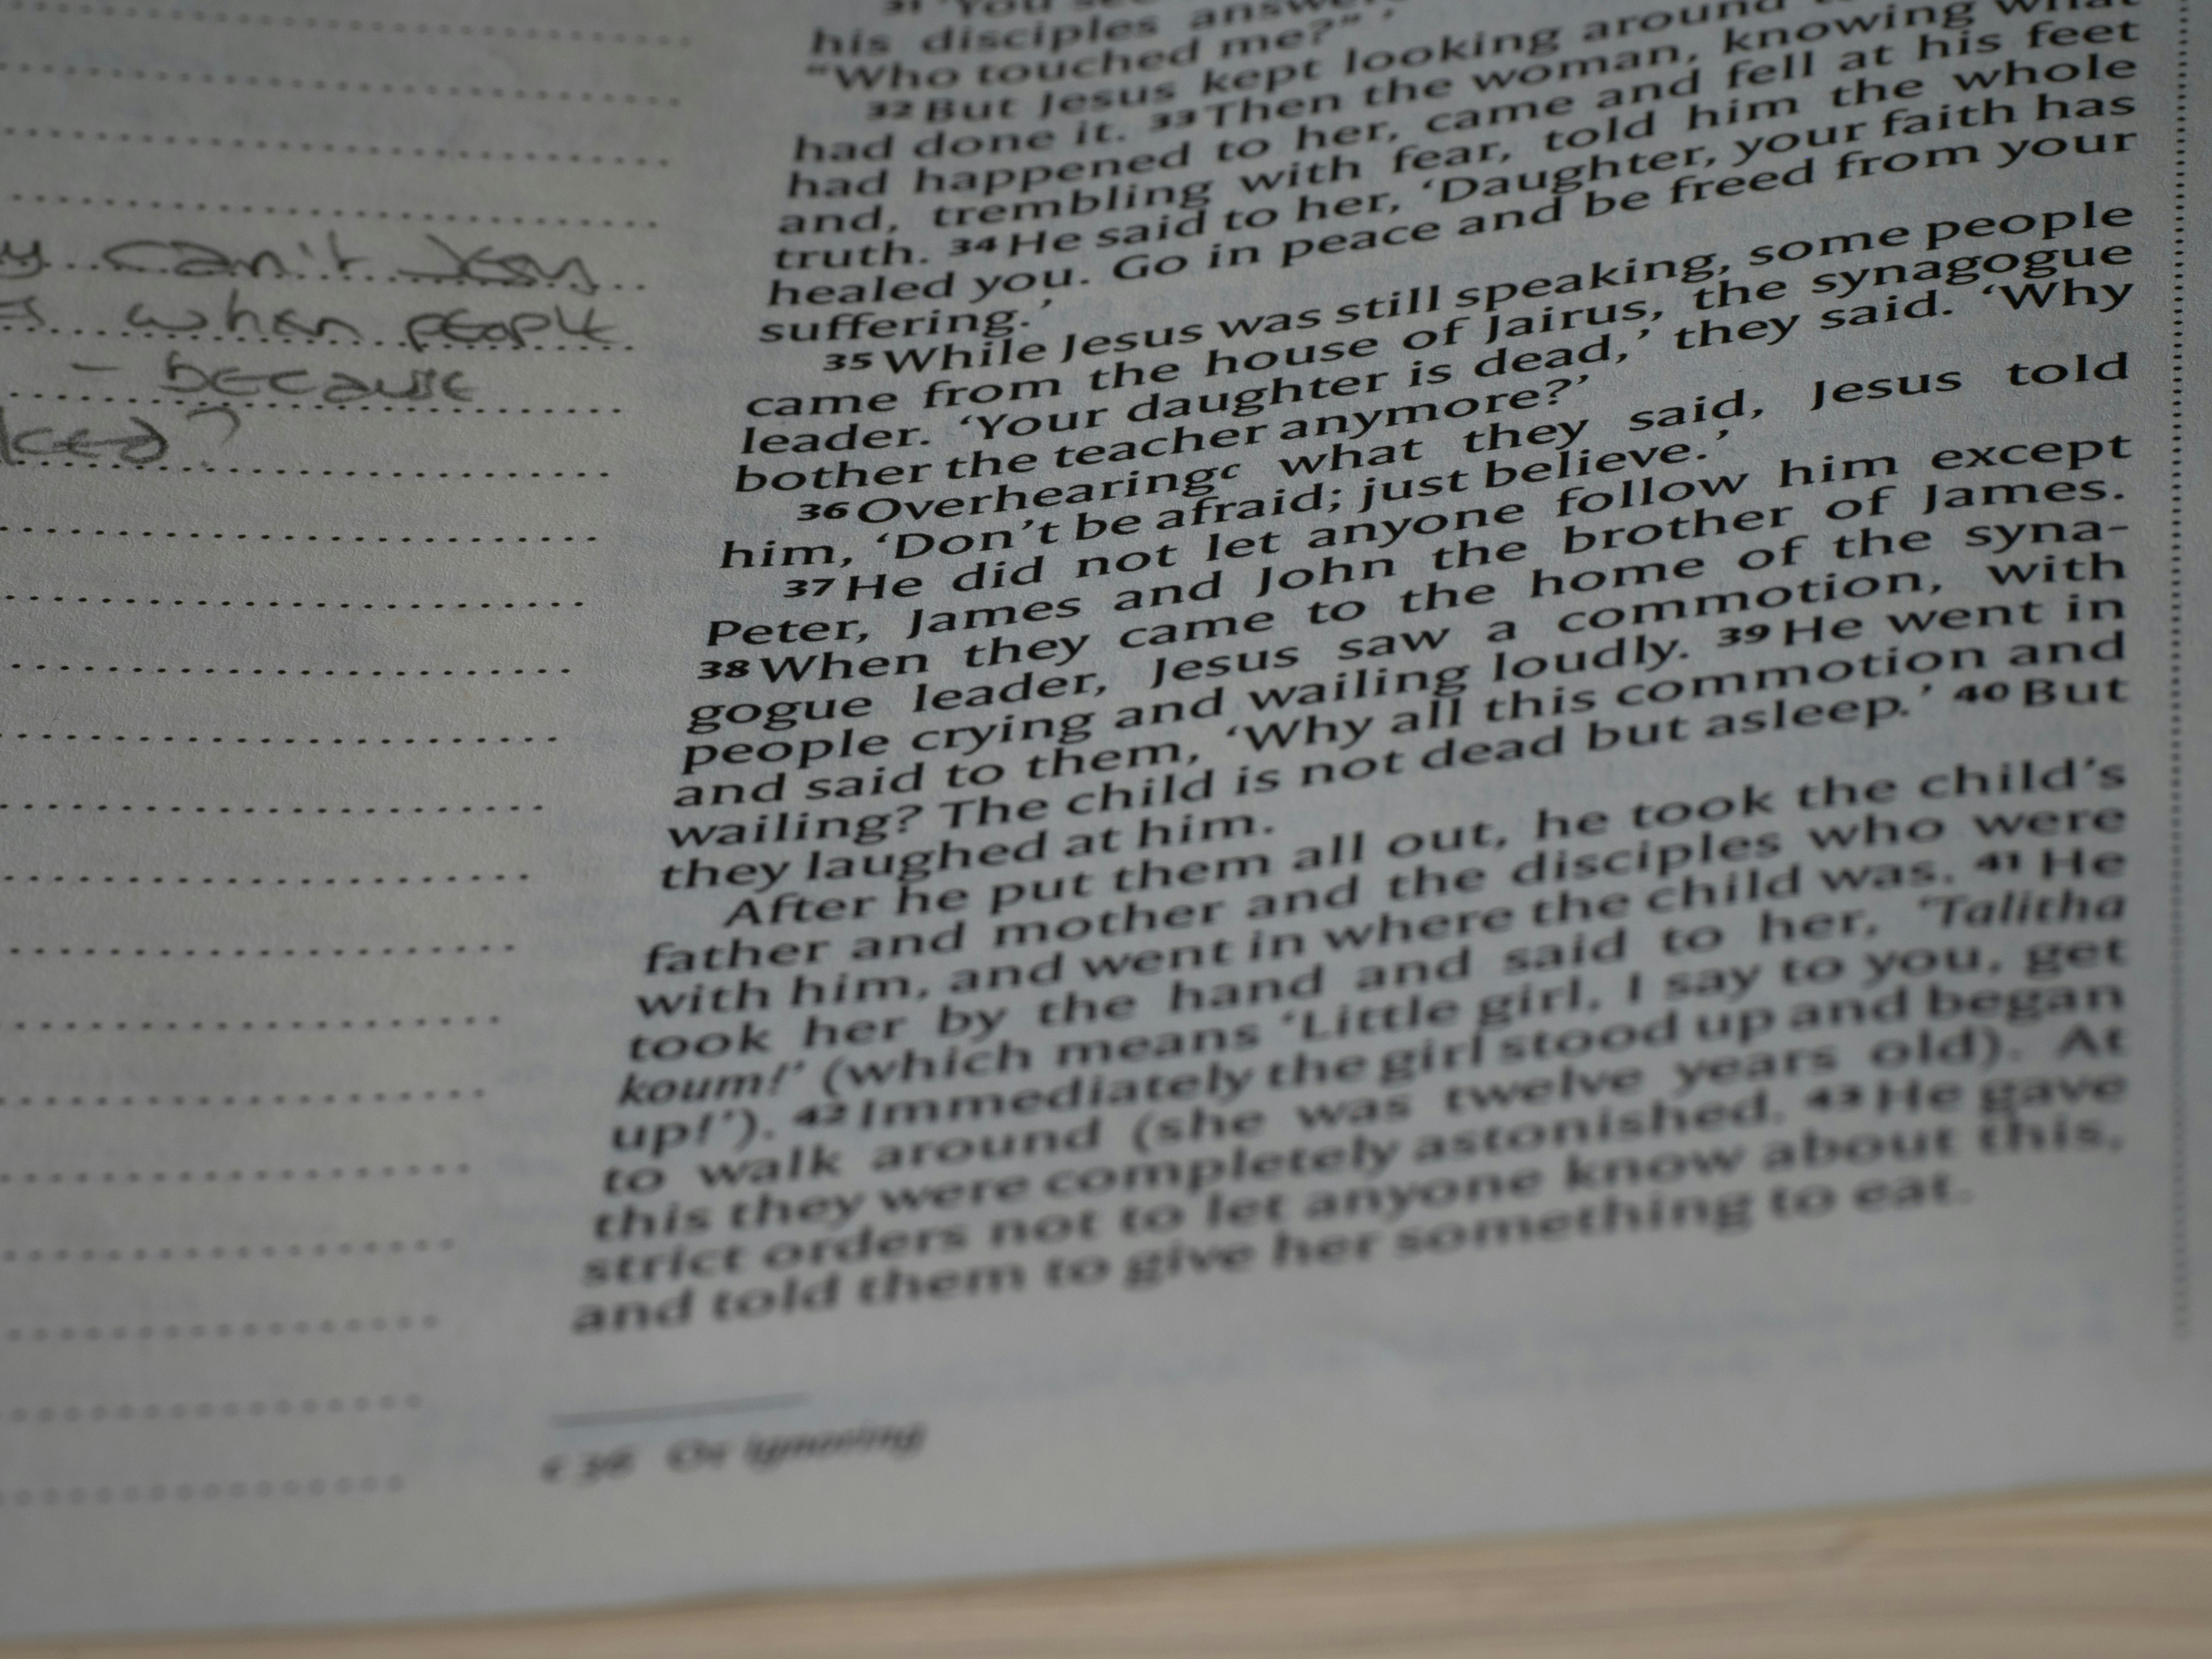 y can't
when people
- because
31 'You see
his disciples
"Who touched me?" '
32 But Jesus kept looking around
had done it. 33 Then the woman, knowing what
had happened to her, came and fell at his feet
and, trembling with fear, told him the whole
truth. 34 He said to her, 'Daughter, your faith has
healed you. Go in peace and be freed from your
suffering.'
35 While Jesus was still speaking, some people
came from the house of Jairus, the synagogue
leader. 'Your daughter is dead,' they said. 'Why
bother the teacher anymore?'
36 Overhearingc what they said, Jesus told
him, 'Don't be afraid; just believe.'
37 He did not let anyone follow him except
Peter, James and John the brother of James.
38 When they came to the home of the syna-
gogue leader, Jesus saw a commotion, with
people crying and wailing loudly. 39 He went in
and said to them, 'Why all this commotion and
wailing? The child is not dead but asleep.' 40 But
they laughed at him.
After he put them all out, he took the child's
father and mother and the disciples who were
with him, and went in where the child was. 41 He
took her by the hand and said to her, 'Talitha
koum!' (which means 'Little girl, I say to you, get
up!'). 42 Immediately the girl stood up and began
to walk around (she was twelve years old). At
this they were completely astonished. 43 He gave
strict orders not to let anyone know about this,
and told them to give her something to eat.
c 36 Or ignoring